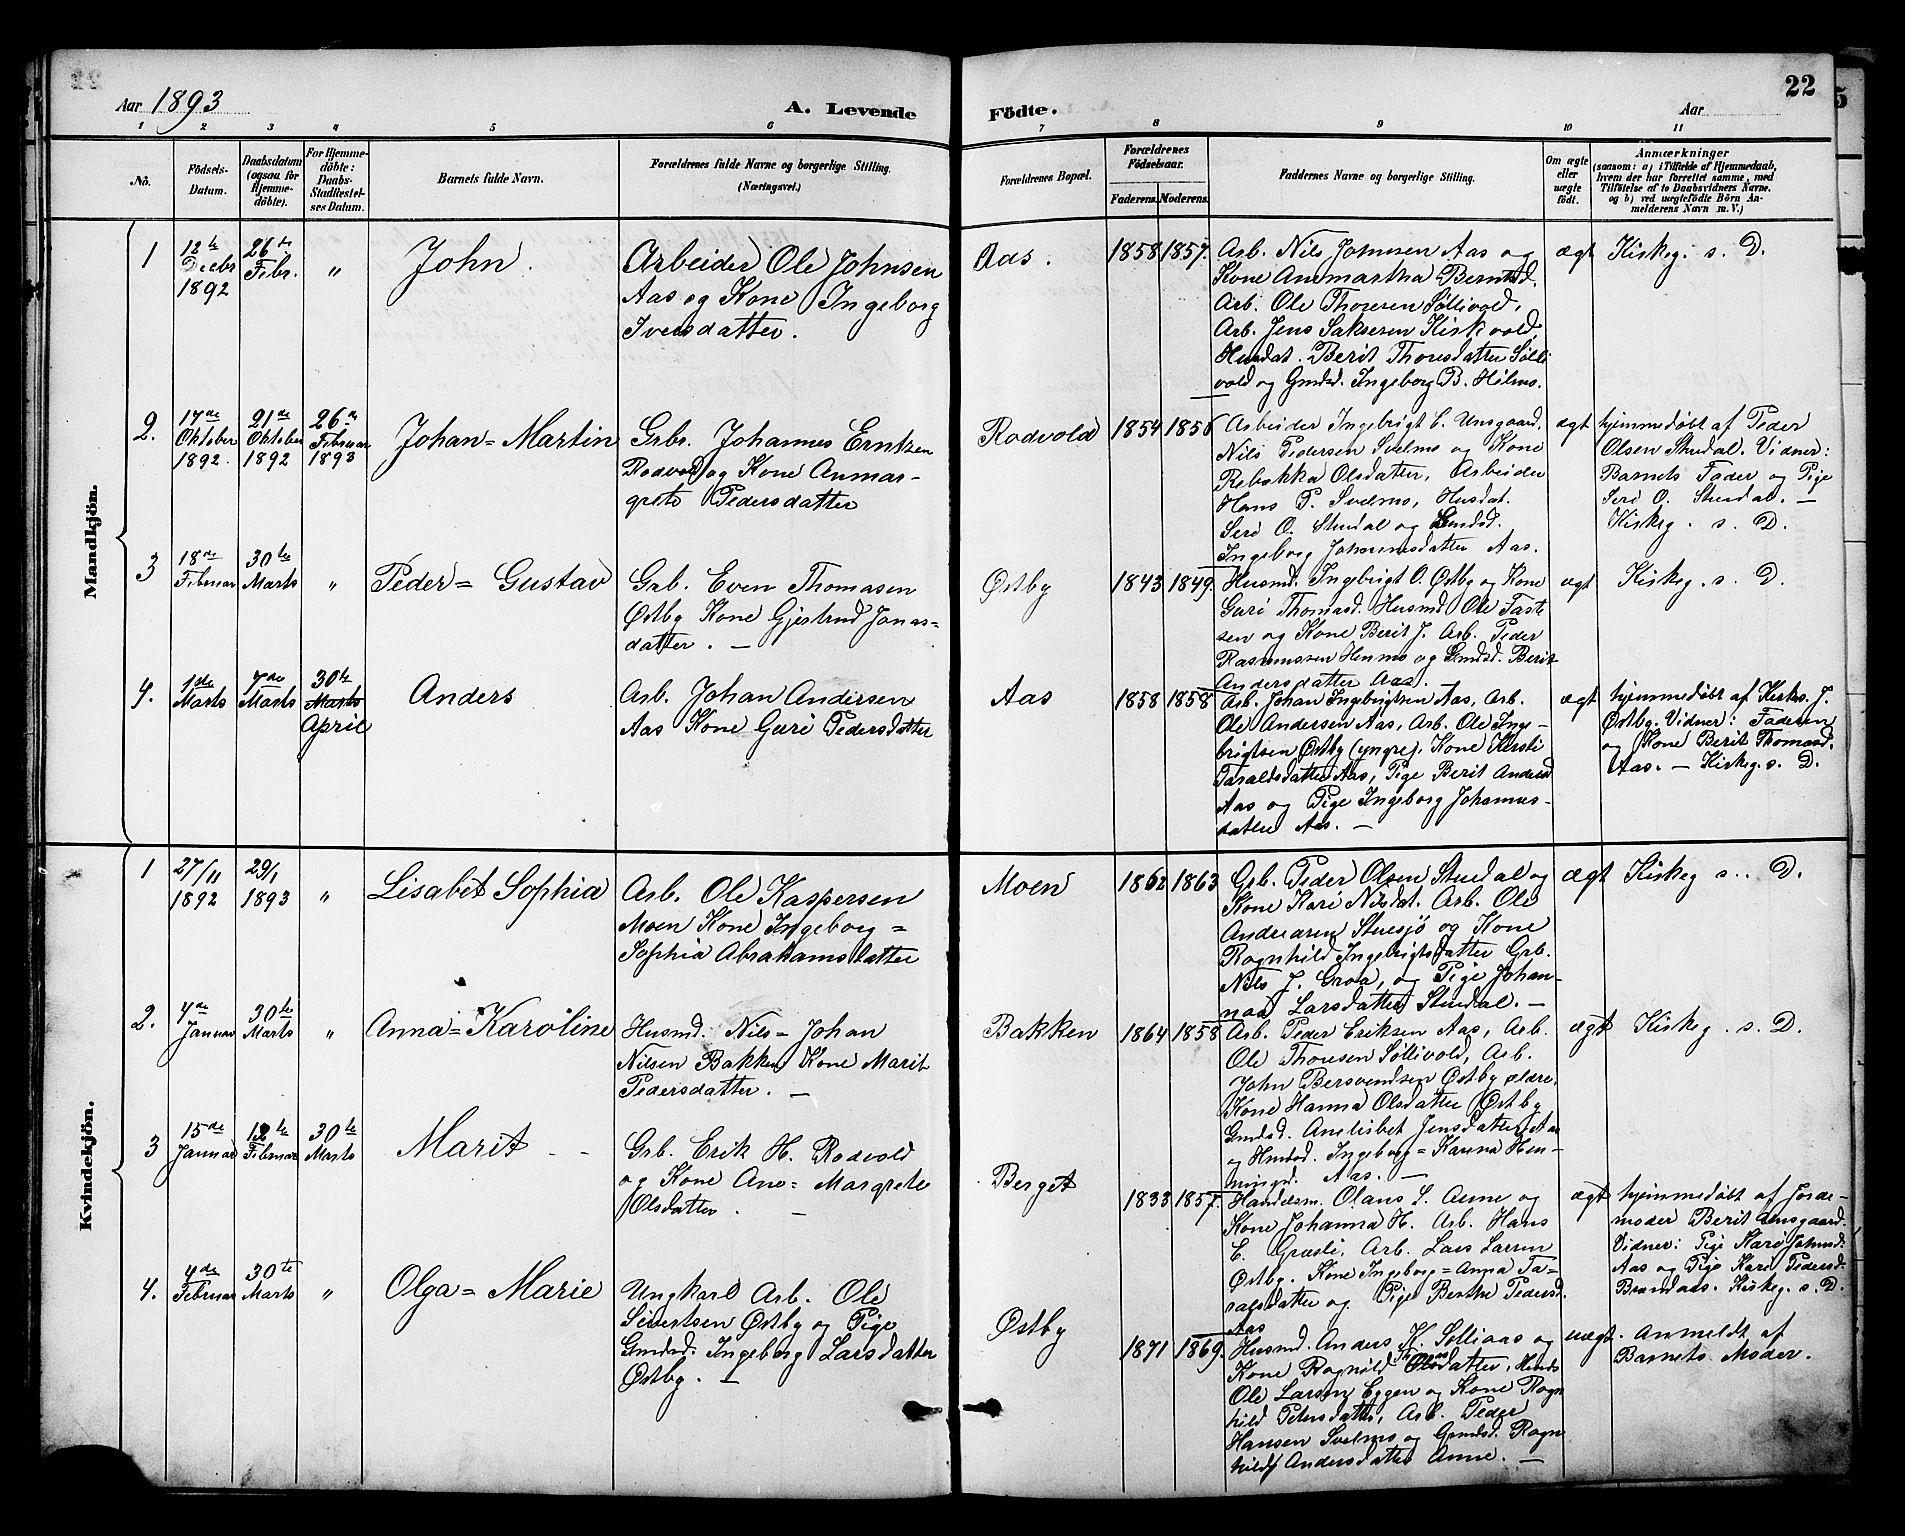 22
Aar 1893
A. Levende Födte.
Aar
22
1 2 3 4 5 6 7 8 9 10 11
No.
Födsels-
Datum.
Daabsdatum
(ogsaa for
Hjemme-
döbte).
For Hjemme-
döbte:
Daabs-
Stadfæstel-
ses Datum.
Barnets fulde Navn.
Forældrenes fulde Navne og borgerlige Stilling.
(Næringsvei.)
Forældrenes Bopæl.
Forældrenes
Födselsaar.
Faderens. Moderens.
Faddernes Navne og borgerlige Stilling.
Om ægte
eller
uægte
født.
Anmærkninger
(saasom: a) i Tilfælde af Hjemmedaab,
hvem der har forrettet samme, med
Tilföielse af to Daabsvidners Navne.
og b) ved uægtefödte Börn An-
melderens Navn m. V.)
Mandkjön.
1
12te
Decbr
1892
26de
Febr.
"
John.
Arbeider Ole Johnsen
Aas og Kone Ingeborg
Iversdatter.
Aas.
1858 1857.
Arb. Nils Johnsen Aas og
Kone Anmartha Berntsd.
Arb. Ole Thoresen Søllivold,
Arb. Jens Saksesen Kirkvold,
Husdat. Berit Thoresdatter Sølli
vold og Gmdsd. Ingeborg B. Hilmo.
ægt
Kirkeg. s. D.
2.
17de
Oktober
1892.
21de
Oktober
1892
26de
Februar
1893
Johan= Martin
Grbr. Johannes Erntsen
Rodvold og Kone Anmar-
grete Pedersdatter
Rodvold
1854 1856
Arbeider Ingebrigt E. Unsgaard,
Nils Pedersen Svelmo og Kone
Rebekka Olsdatter, Arbeider
Hans P. Svelmo, Husdat.
Seri O. Stuedal og Gmdsd.
Ingeborg Johannesdatter Aas.
ægt
hjemmedøbt af Peder
Olsen Stuedal. Vidner:
Barnets Fader og Pige
Seri O. Stuedal. —
Kirkeg. s. D.
3
18de
Februar
30te
Marts
"
Peder= Gustav
Grb. Even Thomasen
Østby Kone Gjertrud Jonas=
datter. —
Østby
1843 1849.
Husmd. Ingebrigt O. Østby og Kone
Guri Thomasd. Husmd Ole Taft
sen og Kone Berit J. Arb. Peder
Rasmussen Henmo og Gmdsd. Berit
Andersdatter Aas.
ægt
Kirkeg. s. D.
4.
1ste
Marts
7de
Marts
30te
Marts
April
Anders
Arb. Johan Andersen
Aas Kone Guri Pedersdatter
Aas
1858 1858
Arb. Johan Ingebrigtsen Aas, Arb.
Ole Andersen Aas, Arb. Ole Inge-
brigtsen Østby (yngre). Kone Kirsti
Taraldsdatter Aas, Pige Berit Andersd
Aas og Pige Ingeborg Johannes-
datter Aas. —
ægt
hjemmedøbt af Kirkes. J.
Østby. Vidner: Faderen
og Kone Berit Thomasd.
Aas. — Kirkeg. s. D.
Kvindekjön.
1
27/11
1892
29/1
1893
"
Lisabet Sophia
Arb. Ole Kaspersen
Moen Kone Ingeborg =
Sophia Abrahamsdatter
Moen
1862 1863
Grb. Peder Olsen Stuedal og
Kone Kari Nilsdat. Arb. Ole
Andreasen Stuesjø og Kone
Rognhild Ingebrigtsdatter Grb.
Nils J. Groa, og Pige Johan-
naa Larsdatter Stuedal. —
ægt
Kirkeg s. D.
2.
4de
Januar
30te
Marts
"
Anna= Karoline
Husmd. Nils= Johan
Nilsen Bakken Kone Marit
Pedersdatter. —
Bakken
1864 1858
Arb. Peder Eriksen Aas, Arb.
Ole Thoresen Søllivold, Arb.
John Bersvendsen Østby ældre,
Kone Hanna Olsdatter Østby
Gmdsd. Anelisbet Jensdatter Aas
og Hmdsd. Ingeborg= Karina Hen-
ningsd. Aas. —
ægt
Kirkeg. s. D.
3
15de
Januar
12te
Februar
30te
Marts
Marit
Grb. Erik H. Rodvold
og Kone Ane= Margrete
Olsdatter. —
Berget
1833 1857.
Handelsm. Olaus L. Aune og
Kone Johanna H. Arb. Hans
E. Græsli, Arb. Lars Larsen
Østby. Kone Ingeborg=Anna Ta-
raldsdatter og Pige Berthe Pedersd.
Aas
ægt
hjemmedøbt af Jorde-
moder Berit Unsgaard.
Vidner: Pige Kari Johnsd.
Aas og Pige Kari Pedersd.
Brændaas. Kirkeg. s. D.
4.
4de
Februar
30te
Marts
"
Olga= Marie
Ungkarl Arb. Ole
Sivertsen Østby og Pige
Gmdsd. Ingeborg Larsdatter
Østby. —
Østby
1871 1869.
Husmd. Anders K. Solliaas og
Kone Rognild Olsdatter, Hmds
Ole Larsen Eggen og Kone Rogn
hild Petersdatter, Arb. Peder
Hansen Svelmo og Gmdsd. Rogn
hild Andersdatter Aune. —
uægt.
Anmeldt af
Barnets Moder.